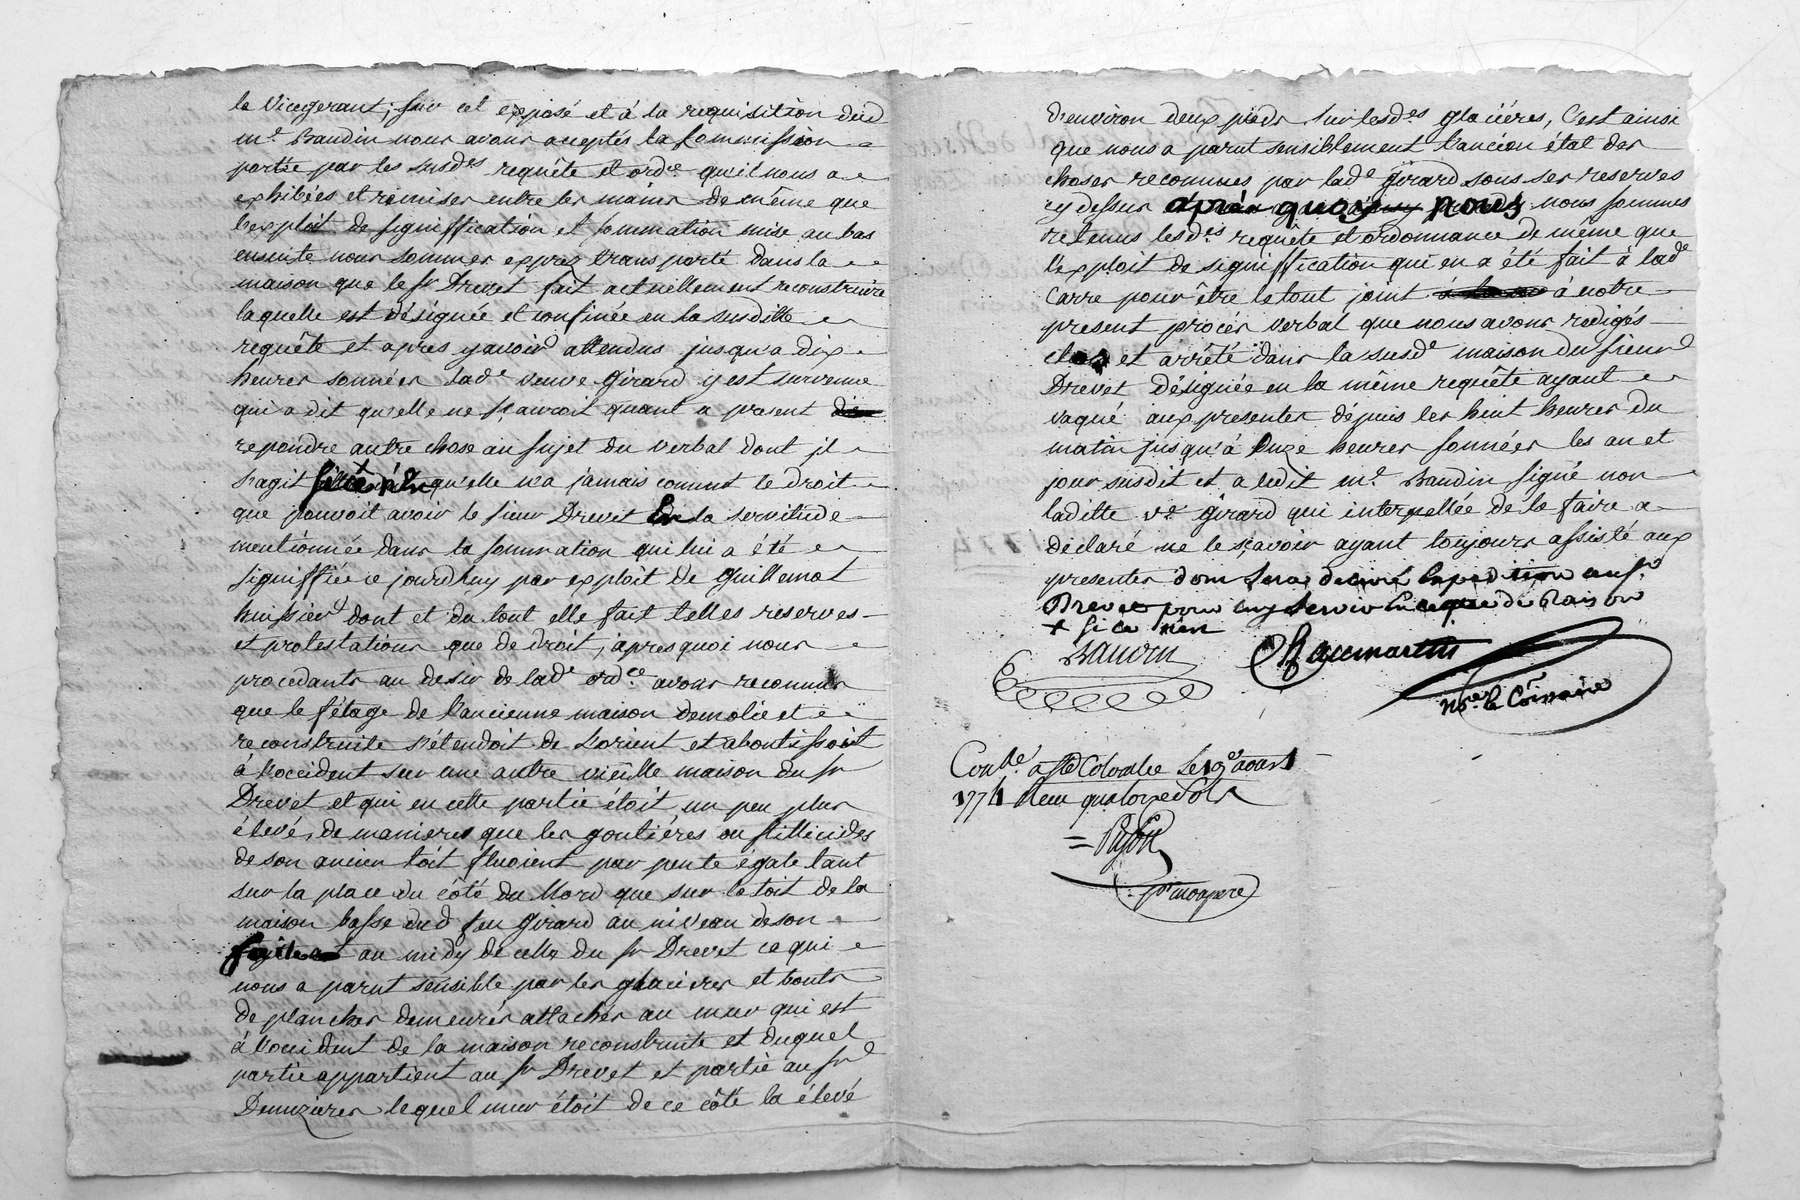 le Vicegerant; sur cet exposé et à la requisition dud
m.e Baudin nous avons acceptés la Commission
portée par les susd.es requête et ord.ce qu'il nous a
exhibées et remises entre les mains de même que
l'exploit de signiffication et sommation mise au bas
ensuite nous sommes exprez transporté dans la
maison que le Sr Drevet fait actuellement reconstruire
laquelle est désignée et confinée en la susditte
requête et apres y avoir attendus jusqu'a dix
heures sonnées lad.e veuve Girard y est survenue
qui a dit qu'elle ne sçauroit quant a present
repondre autre chose au sujet du verbal dont il
s'agit + qu'elle n'a jamais connut le droit
que pouvoit avoir le sieur Drevet de la servitude
mentionnée dans la sommation qui lui a été
signiffiée ce jourdhuy par exploit de Guillemot
huissier dont et du tout elle fait telles reserves
et protestations que de droit, apres quoi nous
procedants au desir de lad.e ord.ce avons reconnus
que le fétage de l'ancienne maison demolie et
reconstruite s'étendoit de L'orient et aboutissoit
à l'occident sur une autre vieille maison du Sr
Drevet et qui en cette partie étoit un peu plus
élevé, de manieres que les goutiéres ou stillicides
de son ancien toit fluoient par pente égale tant
sur la place du côté du Nord que sur le toit de la
maison basse dud feu Girard au niveau de son
au midy de celle du Sr Drevet ce qui
nous a parut sensible par les glacières et bouts
de planches demeurés attachés au mur qui est
à l'occident de la maison reconstruite et duquel
partie appartient au Sr Drevet et partie au Sr
Demuzieres lequel mur étoit de ce côté la élevé
d'environ deux pieds sur lesd.es glaciéres, C'est ainsi
que nous a parut sensiblement l'ancien état des
choses reconnues par lad.e Girard sous ses reserves
cy dessus après quoy nous nous sommes
retenus lesd.es requête et ordonnance de même que
l'exploit de signiffication qui en a été fait à lad.e
Carre pour être le tout joint à notre
present procés verbal que nous avons redigés
clos et arrêté dans la susd.e maison du sieur
Drevet désignée en la même requête ayant
vaqué aux presentes depuis les huit heures du
matin jusqu'à Onze heures sonnées les an et
jour susdit et a ledit m.e Baudin signé non
laditte v.e Girard qui interpellée de le faire a
déclaré ne le sçavoir ayant toujours assisté aux
presentes dont sera delivré Expedition au s.r
Drevet pour luy servir En ce que de Raison
+ si ce n'est
Baudin
n.re & Com.ssaire
Con.lé à S.te Colombe Le 19e aoust
1774 Reçu quatorze sols